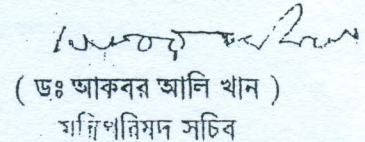 ( ডঃ আকবর আলি খান )
মন্ত্রিপরিষদ সচিব